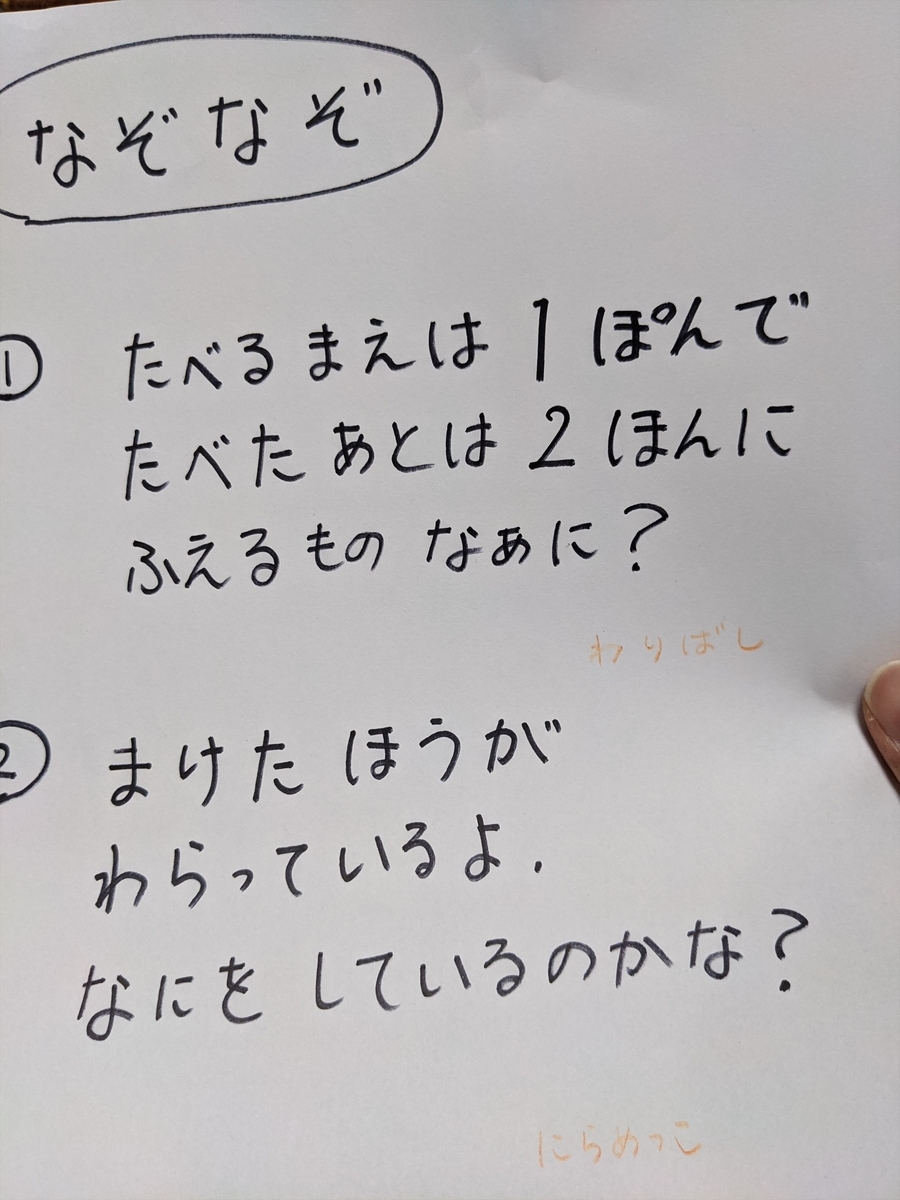 なぞなぞ
① たべるまえは 1ぽんで
たべた あとは 2ほんに
ふえるもの なぁに？
わりばし
② まけた ほうが
わらっているよ.
なにを しているのかな？
にらめっこ